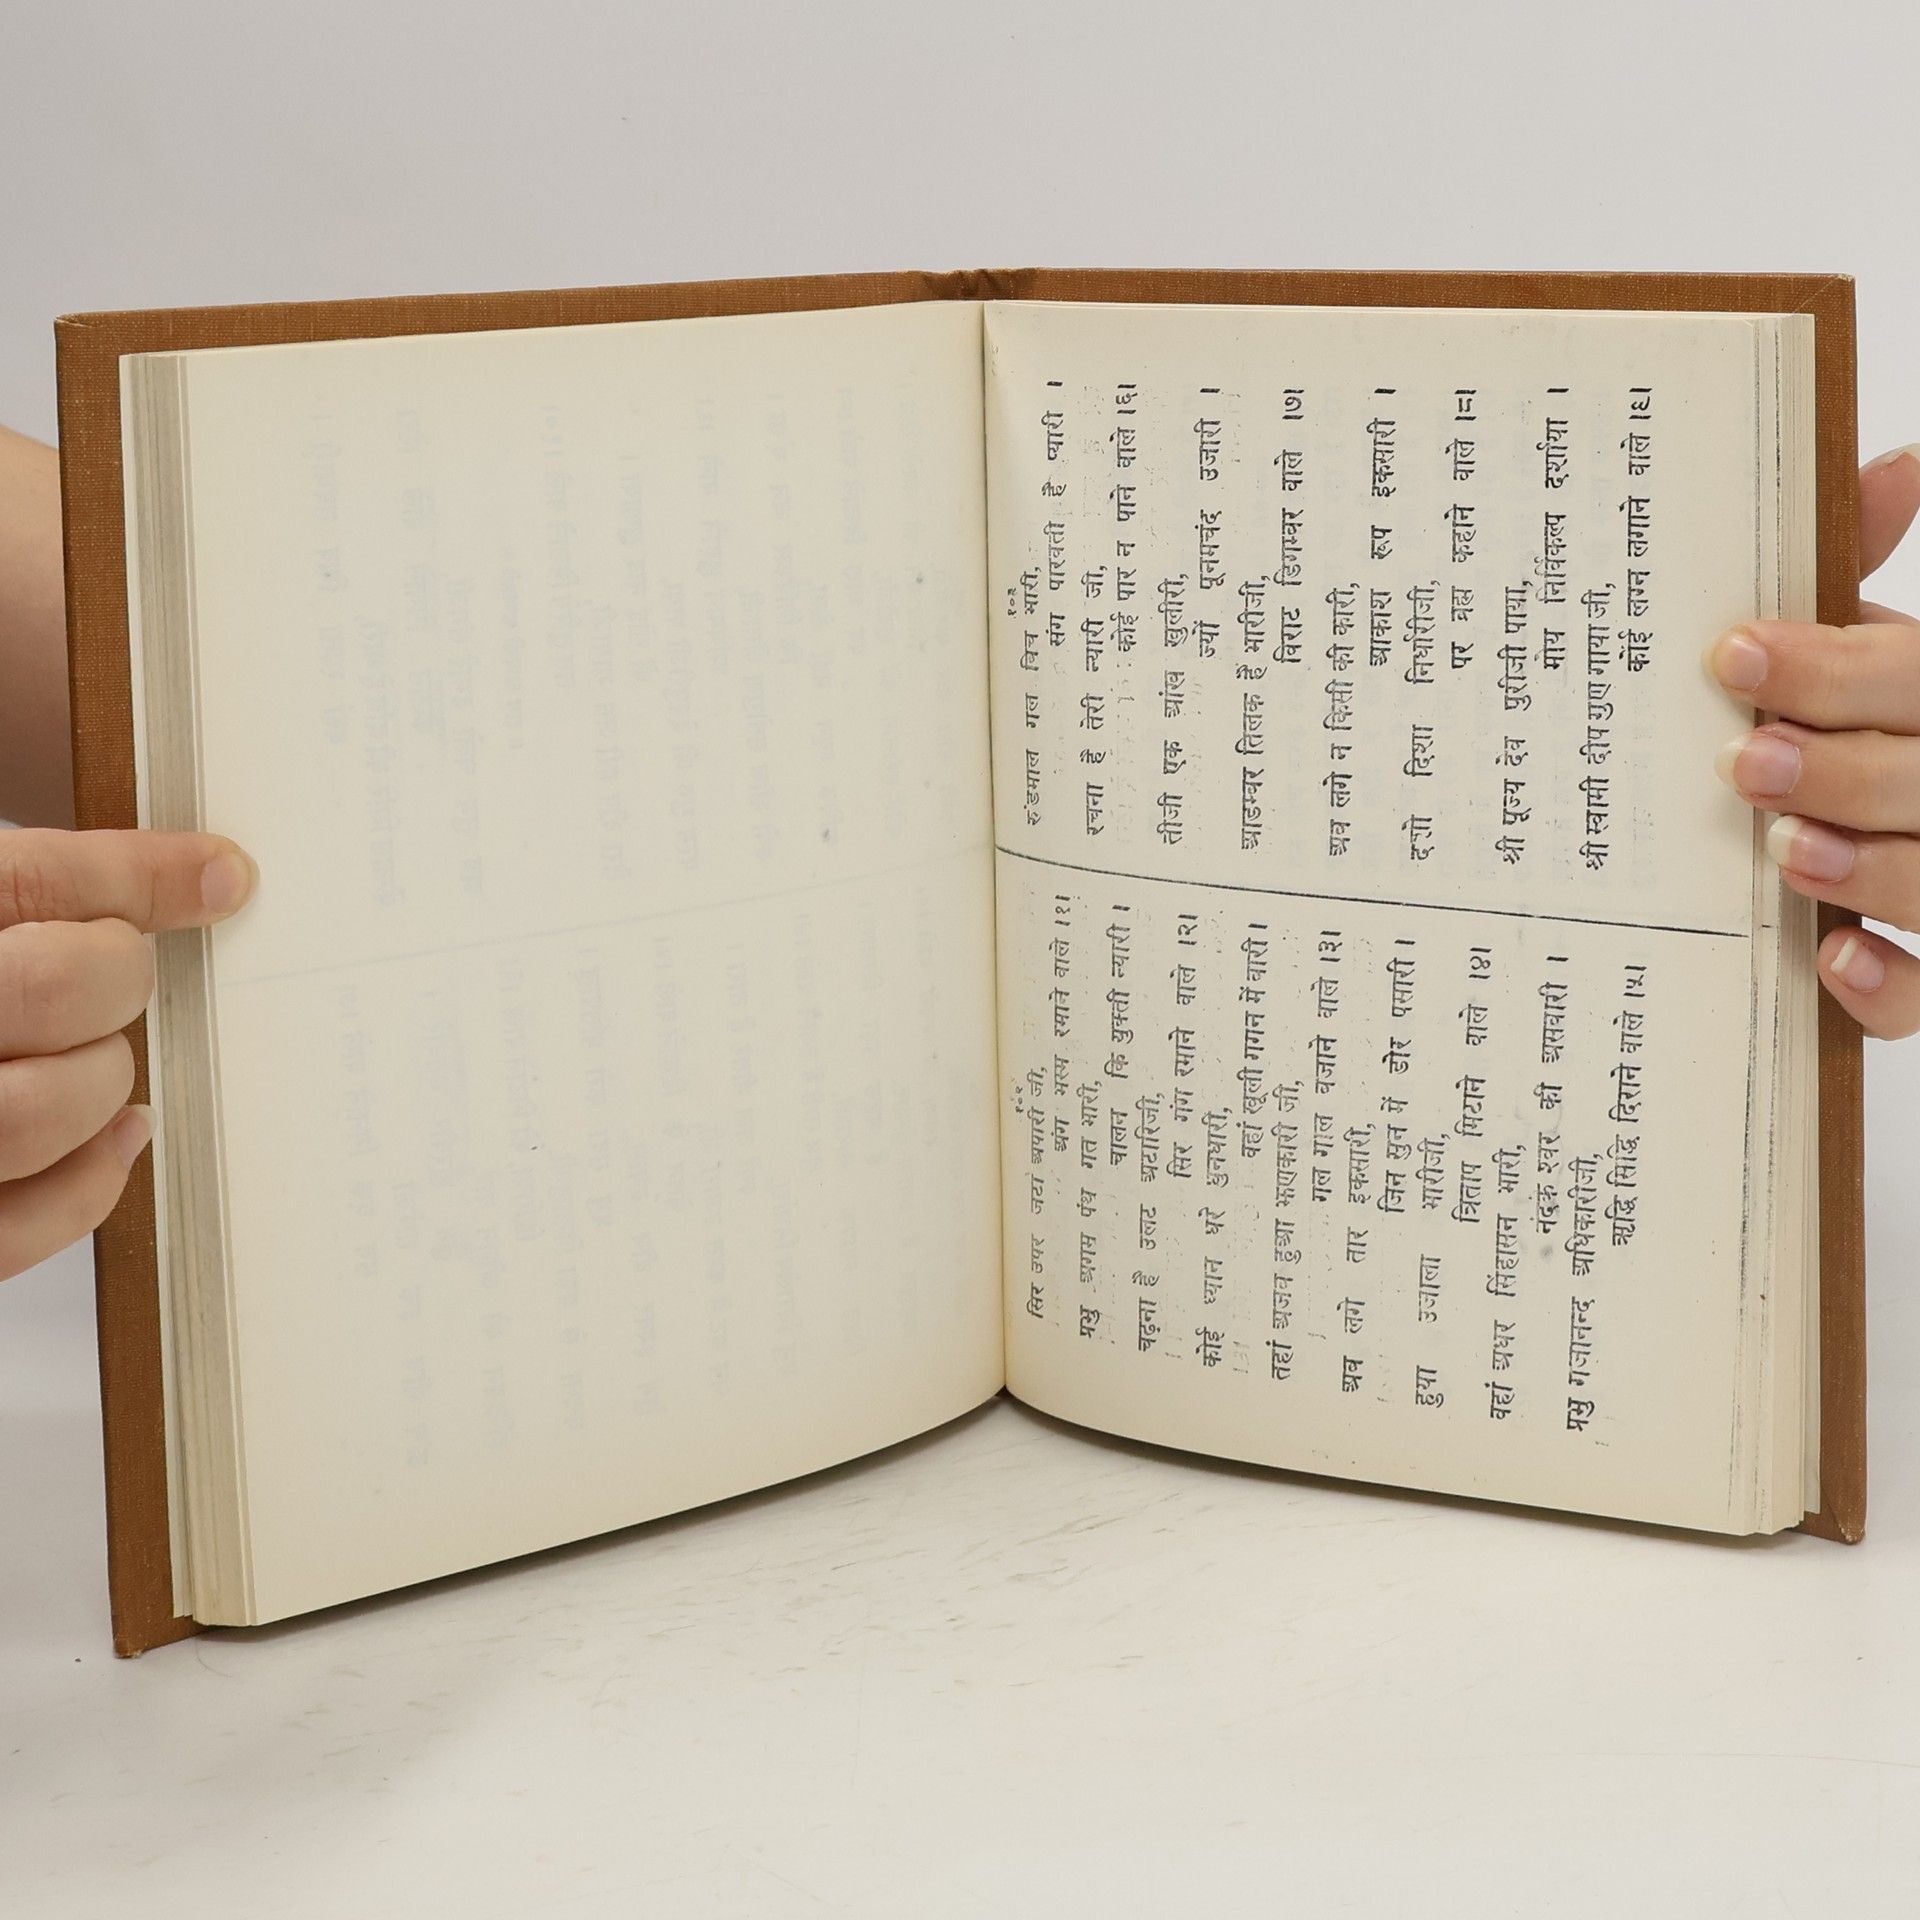 १०२
सिर उपर जटां अपारी जी,
अंग भस्म रमाने वाले ।१।
प्रभु अगम पंथ गत भारी,
चालन कि युक्ती न्यारी ।
चढ़ना है उलट अटारिजी,
सिर गंग रमाने वाले ।२।
कोई ध्यान धरे धुनधारी,
वहां खुली गगन में बारी ।
तहां अजब हुआ झणकारी जी,
गल गाल बजाने वाले ।३।
अब लगे तार इकसारी,
जिन सुन में डोर पसारी ।
हुया उजाला भारीजी,
त्रिताप मिटाने वाले ।४।
वहां अधर सिंहासन भारी,
नंदके श्वर की असवारी ।
प्रभु गजानन्द अधिकारीजी,
ऋद्धि सिद्धि दिराने वाले ।५।
१०३
रुंडमाल गल बिच भारी,
संग पारबती है प्यारी ।
रचना है तेरी न्यारी जी,
कोई पार न पाने वाले ।६।
तीजी एक आंख खुलारी,
ज्यों पूनमचंद उजारी ।
आडम्बर तिलक है भारीजी,
विराट डिगम्बर वाले ।७।
अब लगे न किसी की कारी,
आकाश रूप इकसारी ।
दूजो दिया निवारीजी,
पर ब्रह्म कहाने वाले ।८।
श्री पूज्य देव पुरीजी पाया,
मोय निर्विकल्प दर्शाया ।
श्री स्वामी दीप गुण गाया जी,
कोई लगन लगाने वाले ।९।